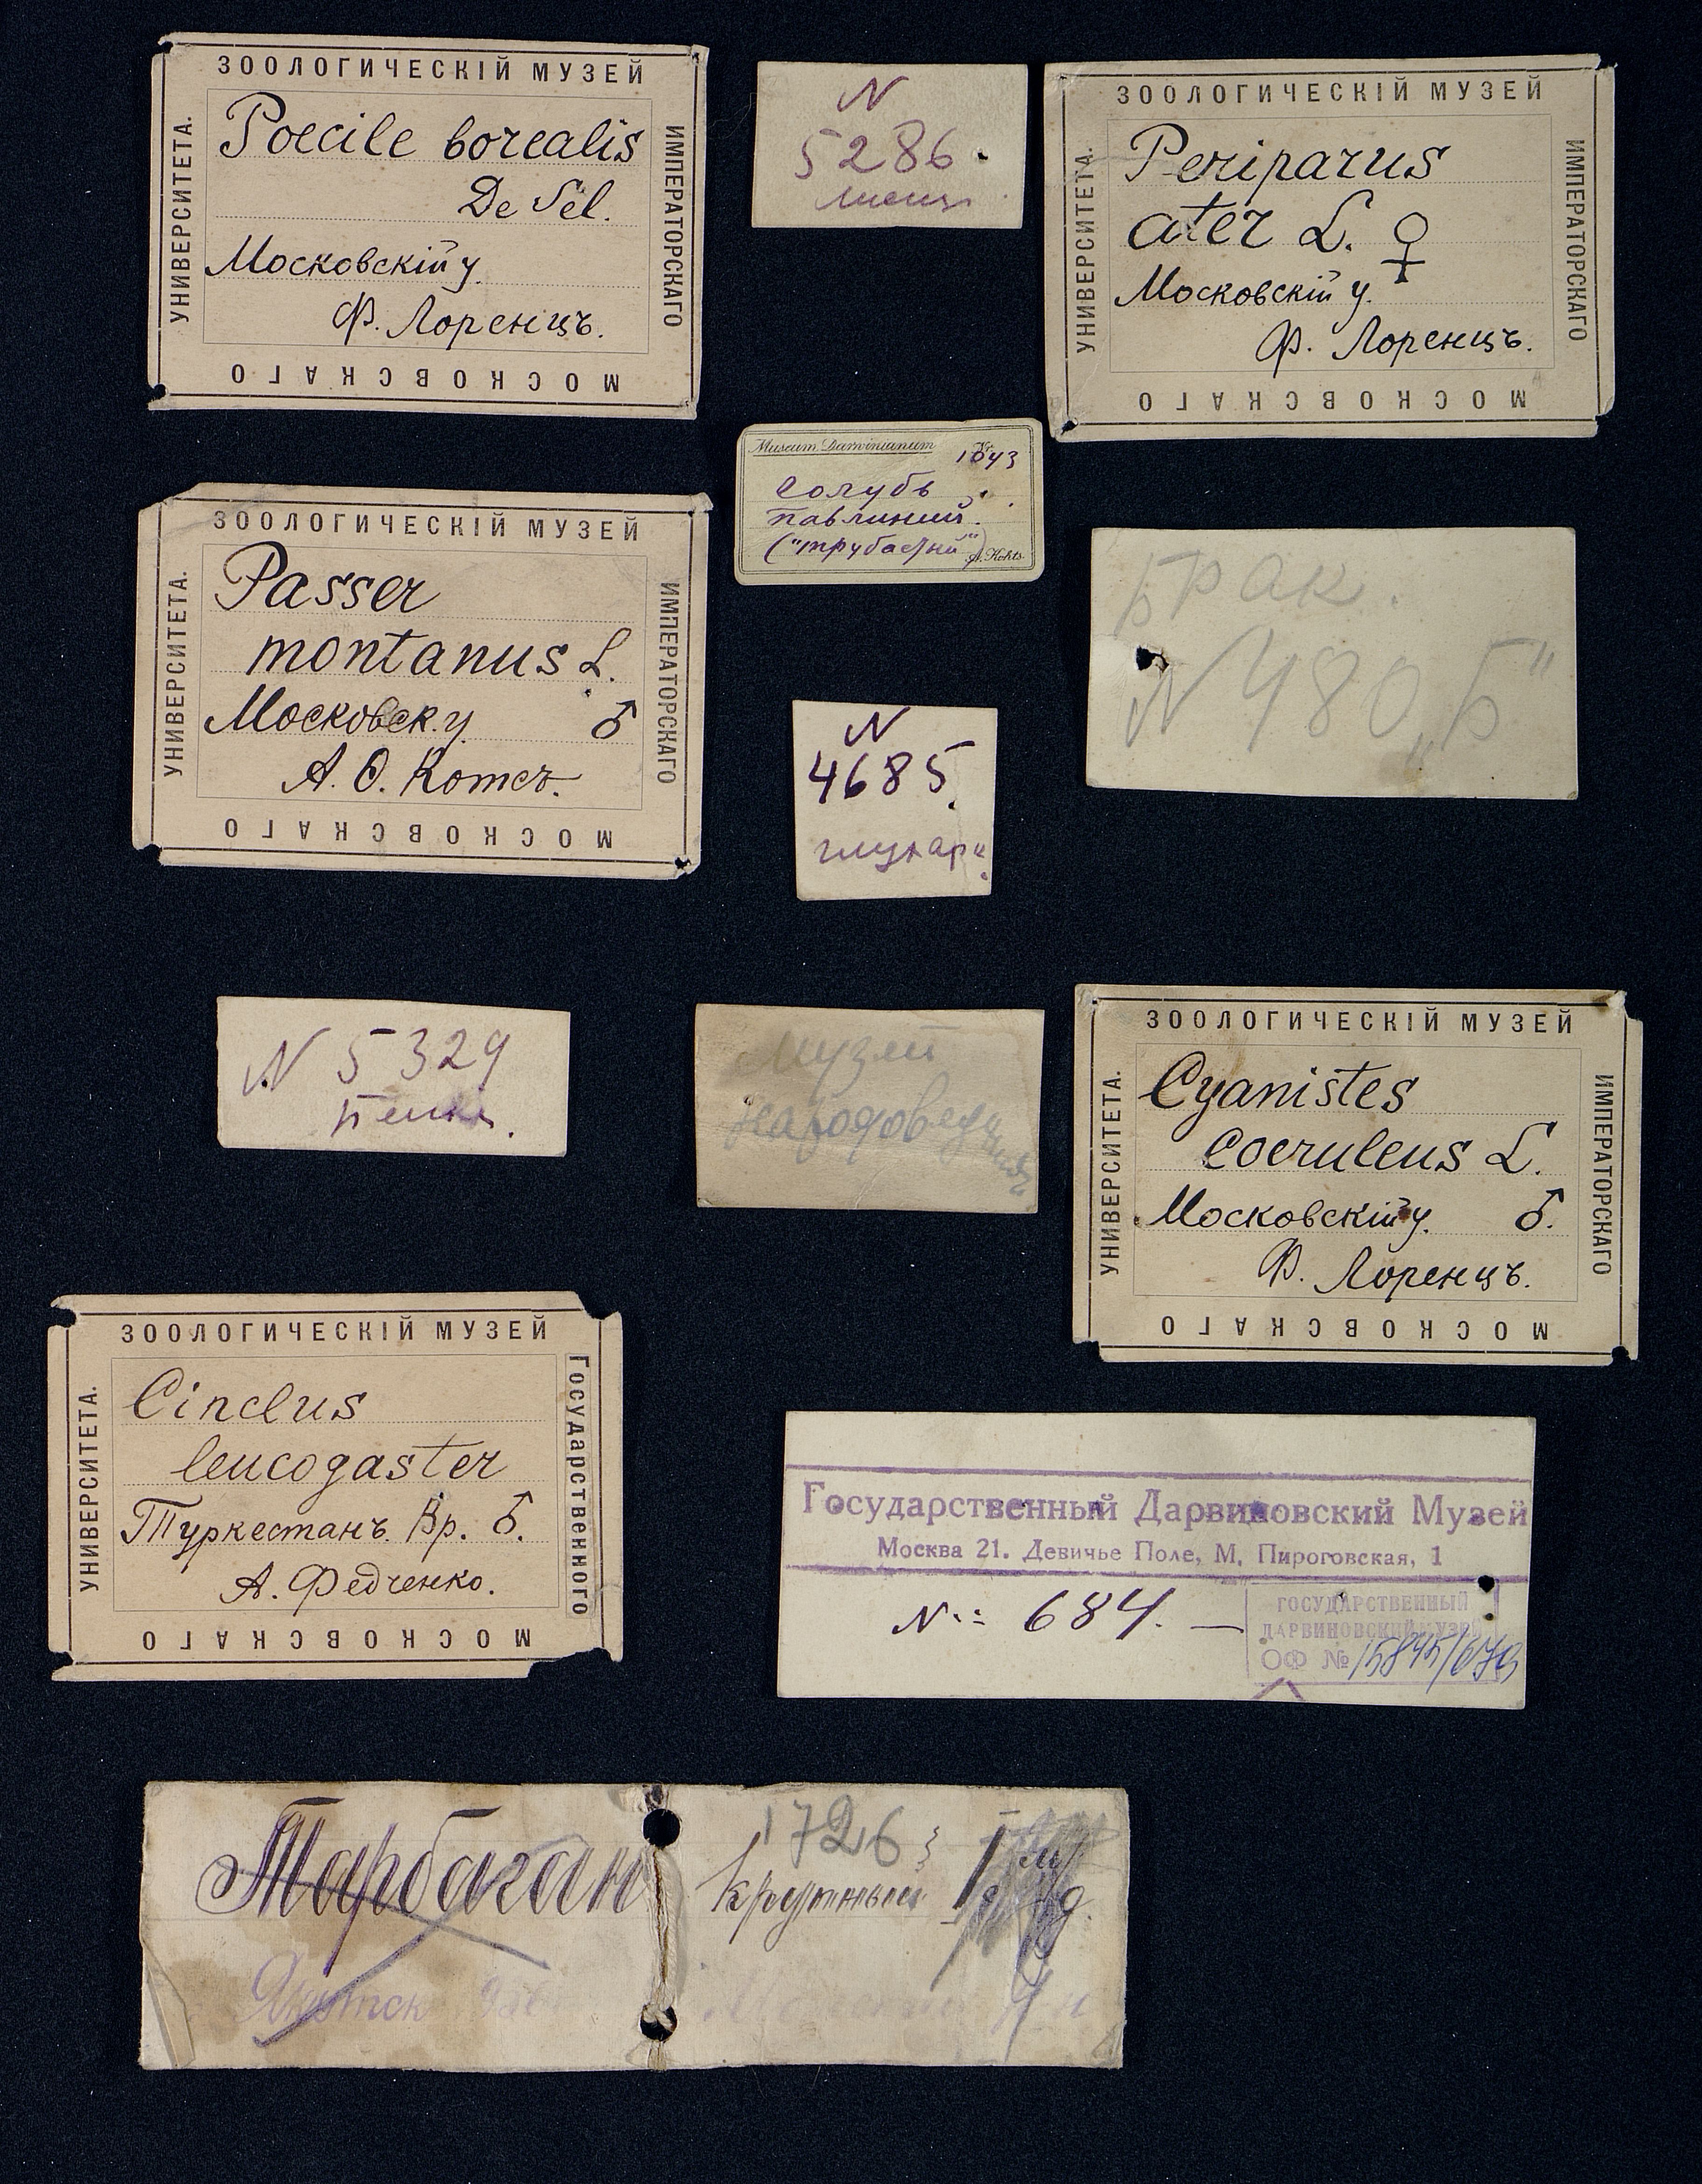 ЗООЛОГИЧЕСКІЙ МУЗЕЙ
ИМПЕРАТОРСКАГО
МОСКОВСКАГО
УНИВЕРСИТЕТА.
Poecile borealis
De Sel.
Московскій у.
Ф. Лоренцъ.
N
5286.
ЗООЛОГИЧЕСКІЙ МУЗЕЙ
ИМПЕРАТОРСКАГО
МОСКОВСКАГО
УНИВЕРСИТЕТА.
Periparus
ater L. ♀
Московскій у.
Ф. Лоренцъ.
Museum Darwinianum Nr.
1043
Голубь
павлиний.
("трубастый")
A. Kohts
ЗООЛОГИЧЕСКІЙ МУЗЕЙ
ИМПЕРАТОРСКАГО
МОСКОВСКАГО
УНИВЕРСИТЕТА.
Passer
montanus L.
Московск. у. ♂
А. Ѳ. Котсъ.
Брак.
N 480 „Б"
N
4685.
глухарь.
N 5329
Музей
народоведения
ЗООЛОГИЧЕСКІЙ МУЗЕЙ
ИМПЕРАТОРСКАГО
МОСКОВСКАГО
УНИВЕРСИТЕТА.
Cyanistes
coeruleus L.
Московскій у. ♂.
Ф. Лоренцъ.
ЗООЛОГИЧЕСКІЙ МУЗЕЙ
Государственного
МОСКОВСКАГО
УНИВЕРСИТЕТА.
Cinclus
leucogaster
Туркестанъ. Вр. ♂.
А. Федченко.
Государственный Дарвиновский Музей
Москва 21. Девичье Поле, М. Пироговская, 1
N:= 684. —
ГОСУДАРСТВЕННЫЙ
ДАРВИНОВСКИЙ МУЗЕЙ
ОФ № 15845/679
Тарбаган
1726
крупный
Якутск